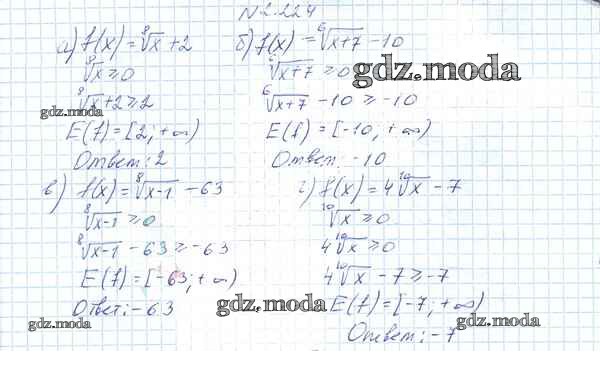 N 2.224
а) f(x) = ⁸√x + 2
⁸√x ≥ 0
⁸√x + 2 ≥ 2
E(f) = [2; +∞)
Ответ: 2
б) f(x) = ⁶√x+7 - 10
⁶√x+7 ≥ 0
⁶√x+7 - 10 ≥ -10
E(f) = [-10, +∞)
Ответ: -10
в) f(x) = ⁸√x-1 - 63
⁸√x-1 ≥ 0
⁸√x-1 - 63 ≥ -63
E(f) = [-63; +∞)
Ответ: -63
г) f(x) = 4¹⁰√x - 7
¹⁰√x ≥ 0
4¹⁰√x ≥ 0
4¹⁰√x - 7 ≥ -7
E(f) = [-7, +∞)
Ответ: -7
gdz.moda
gdz.moda
gdz.moda
gdz.moda
gdz.moda